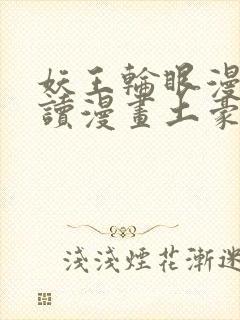 妖王輪眼漫
讀漫畫土豪
淺淺煙花漸迷